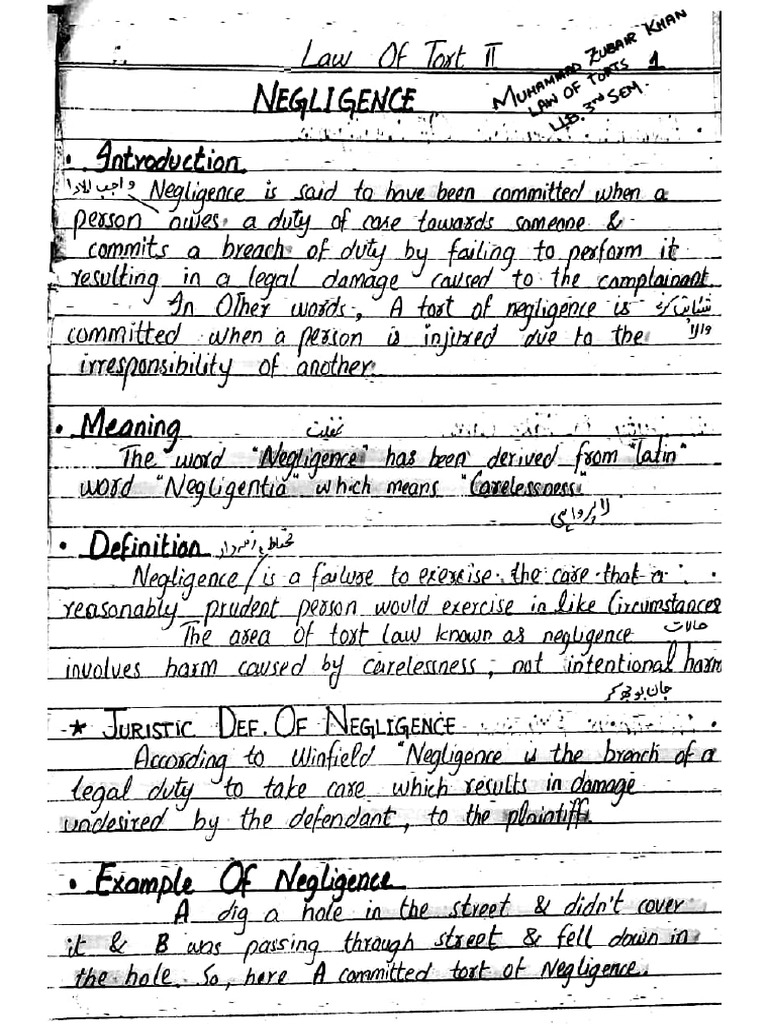 Law Of Tort II
MUHAMMAD ZUBAIR KHAN
LAW OF TORTS 1
LL.B. 3rd SEM.
NEGLIGENCE
• Introduction
واجب الادا Negligence is said to have been committed when a
person owes a duty of care towards someone &
commits a breach of duty by failing to perform it
resulting in a legal damage caused to the complainant.
In Other words, A tort of negligence is شکایت کرنے
committed when a person is injured due to the والا
irresponsibility of another.
• Meaning غفلت
The word "Negligence" has been derived from "latin"
word "Negligentia" which means "Carelessness"
لاپرواہی
• Definition
Negligence is a failure to exercise the care that a
reasonably prudent person would exercise in like Circumstances
The area of tort law known as negligence حالات
involves harm caused by carelessness, not intentional harm
جان بوجھ کر
* JURISTIC DEF. OF NEGLIGENCE
According to Winfield "Negligence is the breach of a
legal duty to take care which results in damage
undesired by the defendant, to the plaintiff.
• Example Of Negligence
A dig a hole in the street & didn't cover
it & B was passing through street & fell down in
the hole. So, here A committed tort of Negligence.